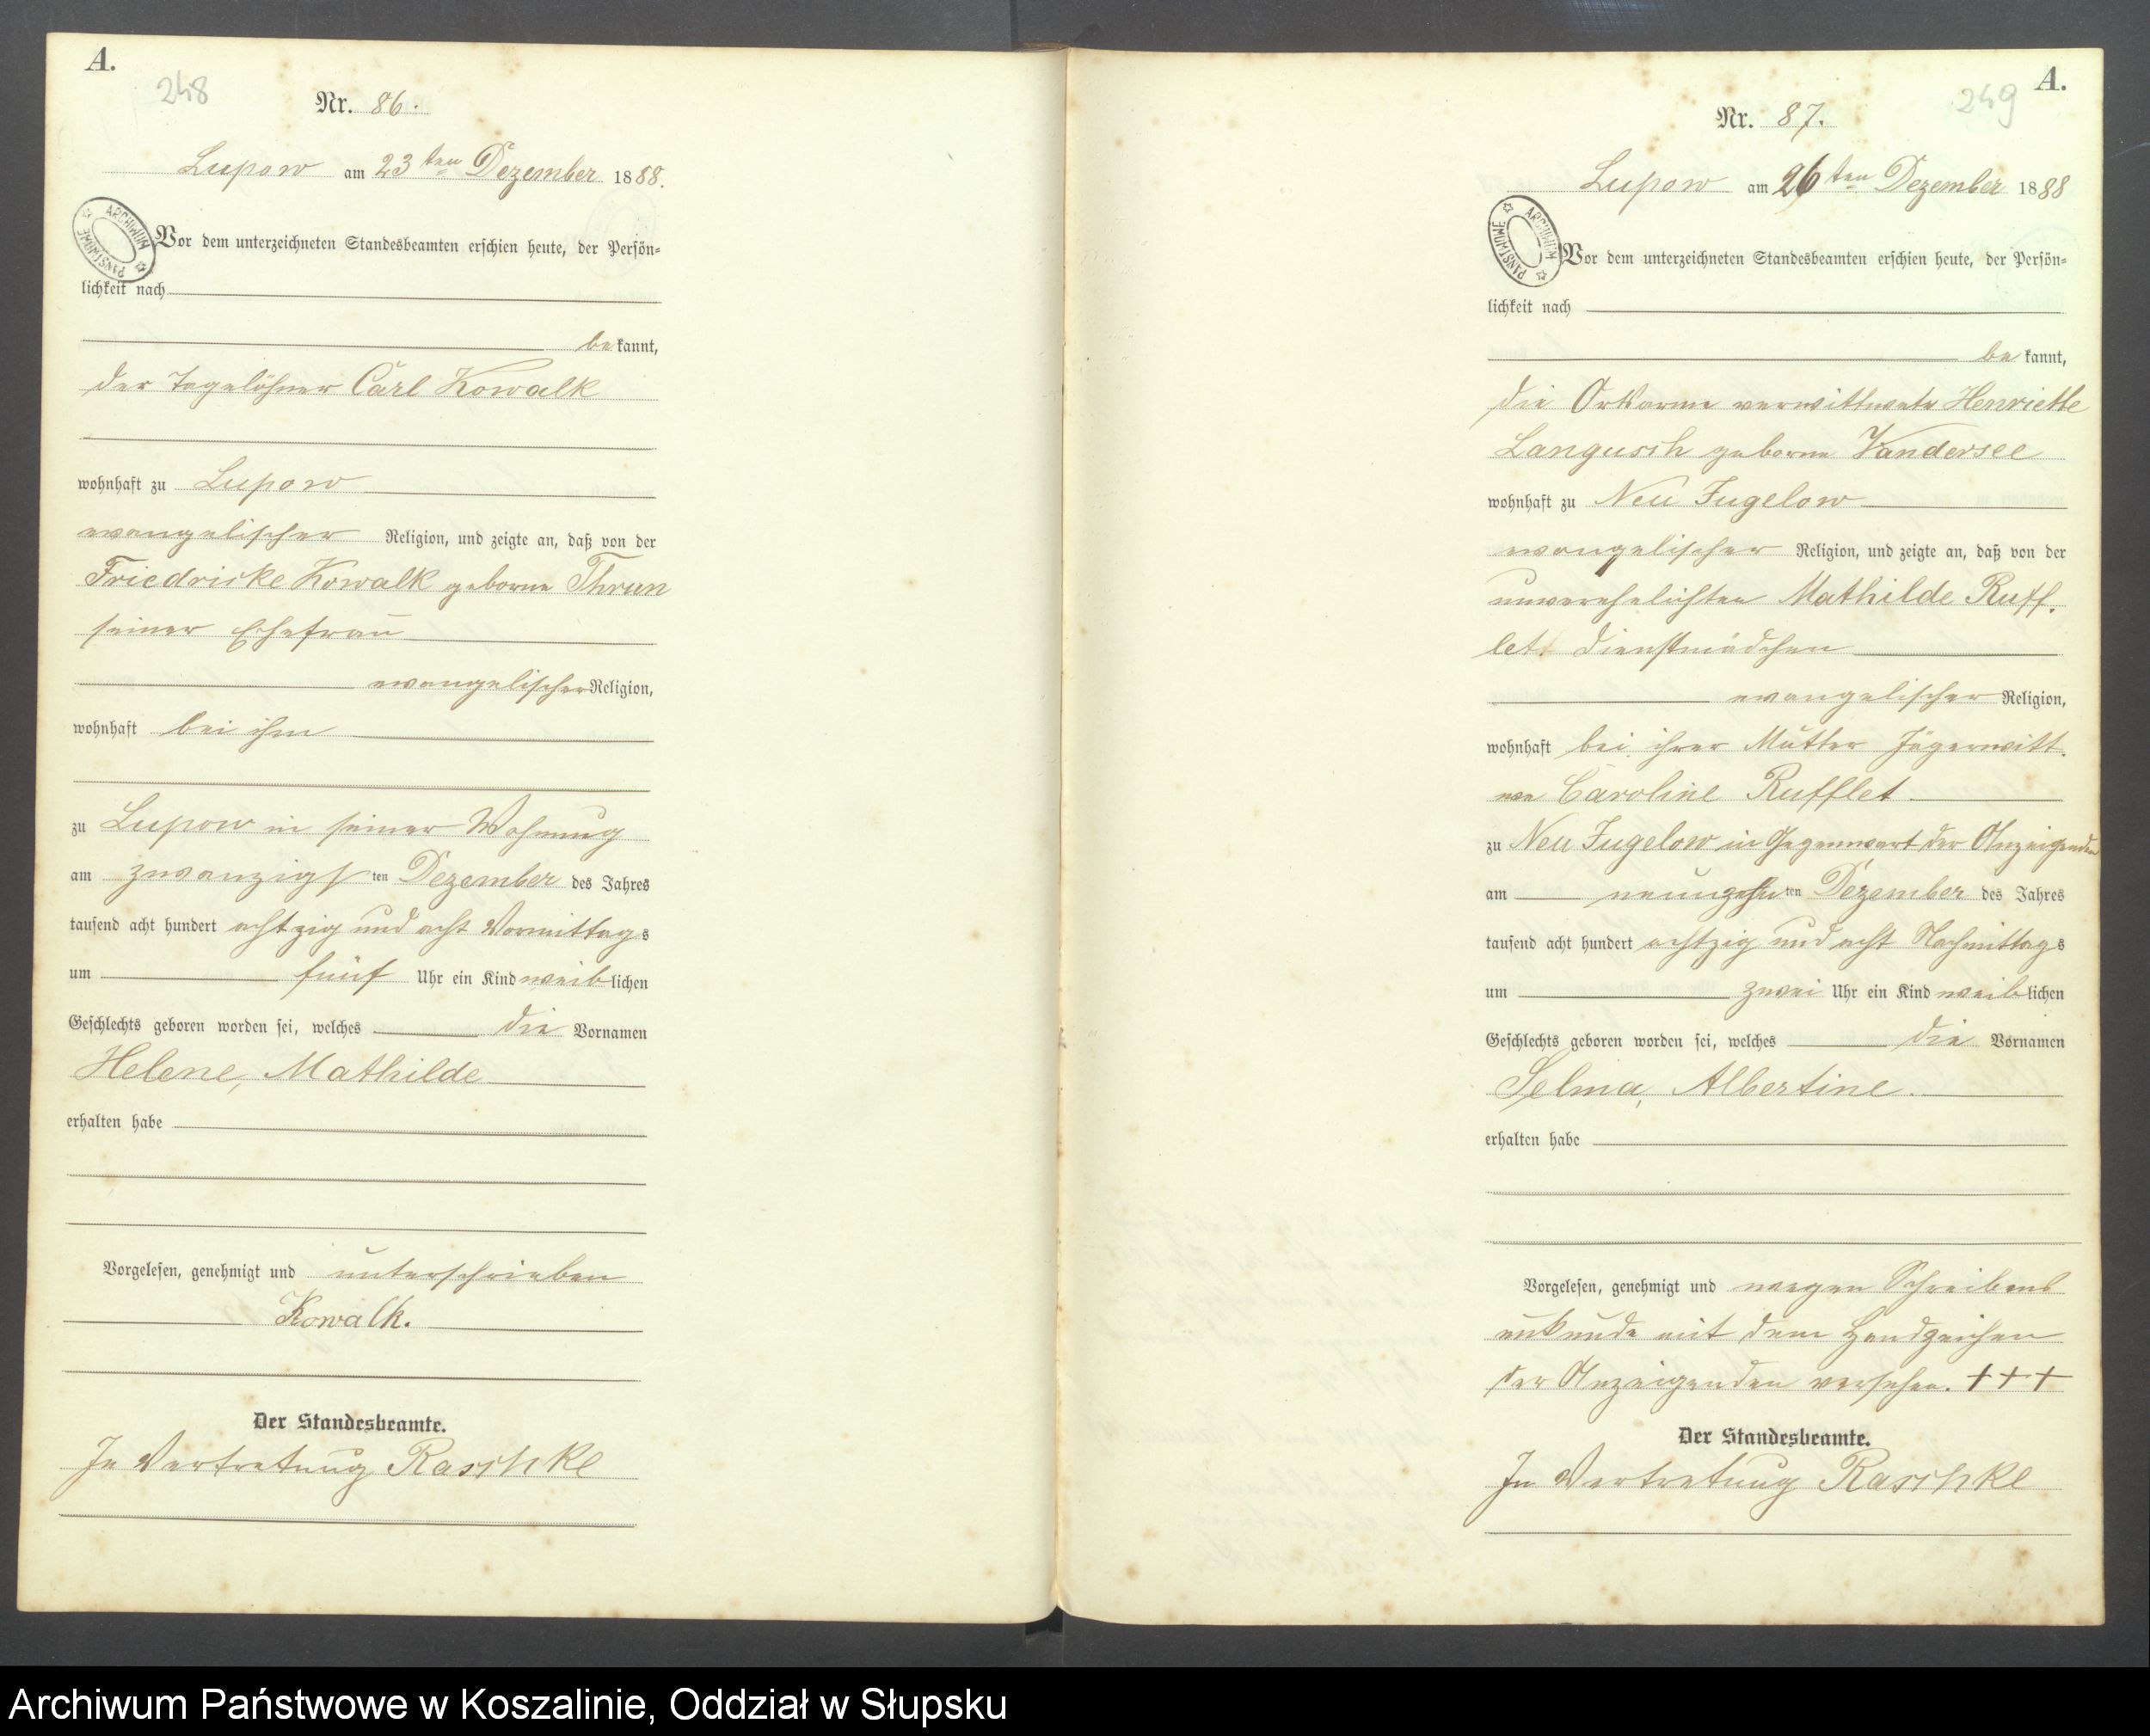 A.
248
Nr. 86.
Lupow am 23ten Dezember 1888.
ARCHIWUM PAŃSTWOWE
Vor dem unterzeichneten Standesbeamten erschien heute, der Persön-
lichkeit nach
bekannt,
der Tagelöhner Carl Kowalk
wohnhaft zu Lupow
evangelischer Religion, und zeigte an, daß von der
Friedricke Kowalk geborne Thrun
seiner Ehefrau
evangelischer Religion,
wohnhaft bei ihm
zu Lupow in seiner Wohnung
am zwanzigsten Dezember des Jahres
tausend acht hundert achtzig und acht Vormittags
um fünf Uhr ein Kind weiblichen
Geschlechts geboren worden sei, welches die Vornamen
Helene, Mathilde
erhalten habe
Vorgelesen, genehmigt und unterschrieben
Kowalk.
Der Standesbeamte.
In Vertretung Raschke
A.
249
Nr. 87.
Lupow am 26ten Dezember 1888
ARCHIWUM PAŃSTWOWE
Vor dem unterzeichneten Standesbeamten erschien heute, der Persön-
lichkeit nach
bekannt,
die Ortsarme verwittwete Henriette
Langusch geborne Vandersee
wohnhaft zu Neu Jugelow
evangelischer Religion, und zeigte an, daß von der
unverehelichten Mathilde Ruff-
let. Dienstmädchen
evangelischer Religion,
wohnhaft bei ihrer Mutter Jägerwitt-
we Caroline Rufflet
zu Neu Jugelow in Gegenwart der Anzeigenden
am neunzehnten Dezember des Jahres
tausend acht hundert achtzig und acht Nachmittags
um zwei Uhr ein Kind weiblichen
Geschlechts geboren worden sei, welches die Vornamen
Selma, Albertine.
erhalten habe
Vorgelesen, genehmigt und wegen Schreibens
unkunde mit dem Handzeichen
der Anzeigenden versehen. +++
Der Standesbeamte.
In Vertretung Raschke
Archiwum Państwowe w Koszalinie, Oddział w Słupsku